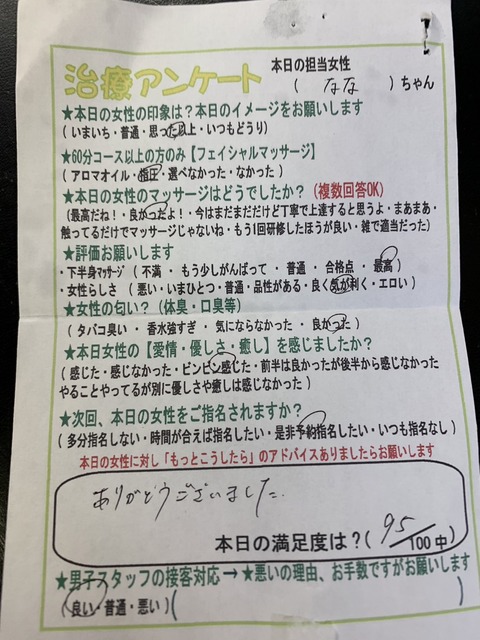 本日の担当女性
治療アンケート ( なな )ちゃん
★本日の女性の印象は？本日のイメージをお願いします
( いまいち・普通・思った以上・いつもどうり )
★60分コース以上の方のみ【フェイシャルマッサージ】
( アロマオイル・指圧・選べなかった・なかった )
★本日の女性のマッサージはどうでしたか？(複数回答OK)
(最高だね！・良かったよ！・今はまだまだだけど丁寧で上達すると思うよ・まあまあ・
触ってるだけでマッサージじゃないね・もう1回研修したほうが良い・雑で適当だった)
★評価お願いします
・下半身ﾏｯｻｰｼﾞ ( 不満 ・ もう少しがんばって ・ 普通 ・ 合格点 ・ 最高 )
・女性らしさ ( 悪い・いまひとつ・普通・品性がある・良く気が利く・エロい )
★女性の匂い？ (体臭・口臭等)
( タバコ臭い ・ 香水強すぎ ・ 気にならなかった ・ 良かった )
★本日女性の【愛情・優しさ・癒し】を感じましたか？
( 感じた・感じなかった・ビンビン感じた・前半は良かったが後半から感じなかった
やることやってるが別に優しさや癒しは感じなかった )
★次回、本日の女性をご指名されますか？
( 多分指名しない・時間が合えば指名したい・是非予約指名したい・いつも指名なし )
本日の女性に対し「もっとこうしたら」のアドバイスありましたらお願いします
ありがとうございました。
本日の満足度は？( 95/100中 )
★男子スタッフの接客対応 → ★悪いの理由、お手数ですがお願いします
(良い・普通・悪い) ( )